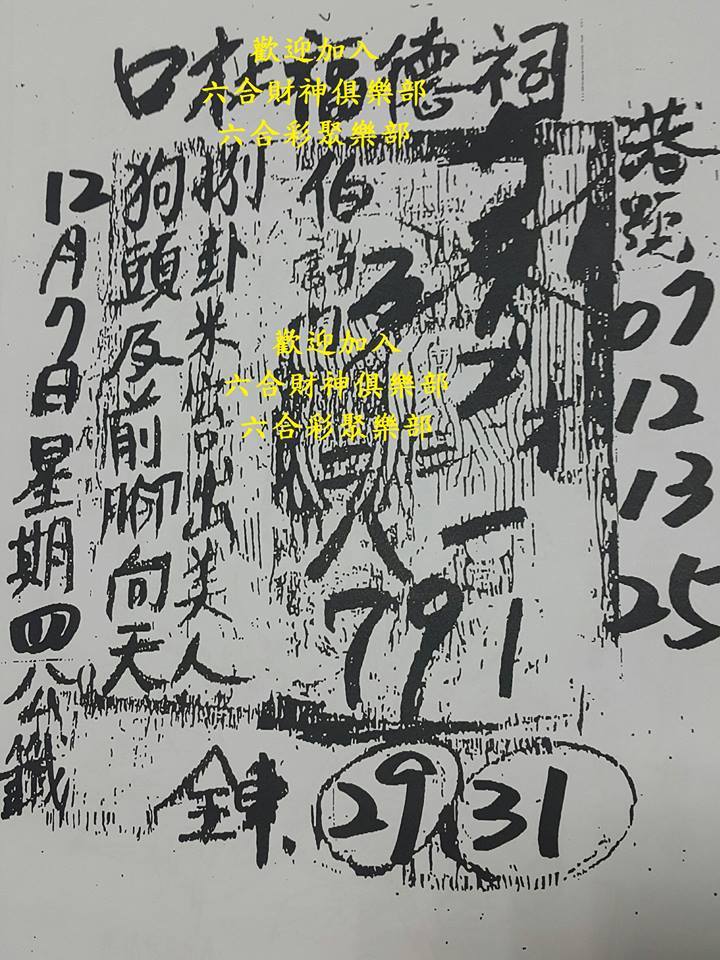 口 福德祠
歡迎加入
六合財神俱樂部
六合彩聚樂部
港號
07
12
13
25
捌卦米 出美人
狗頭反前腳向天
12月7日星期四八公籤
伯
歡迎加入
六合財神俱樂部
六合彩聚樂部
八一
791
全車.
29 31